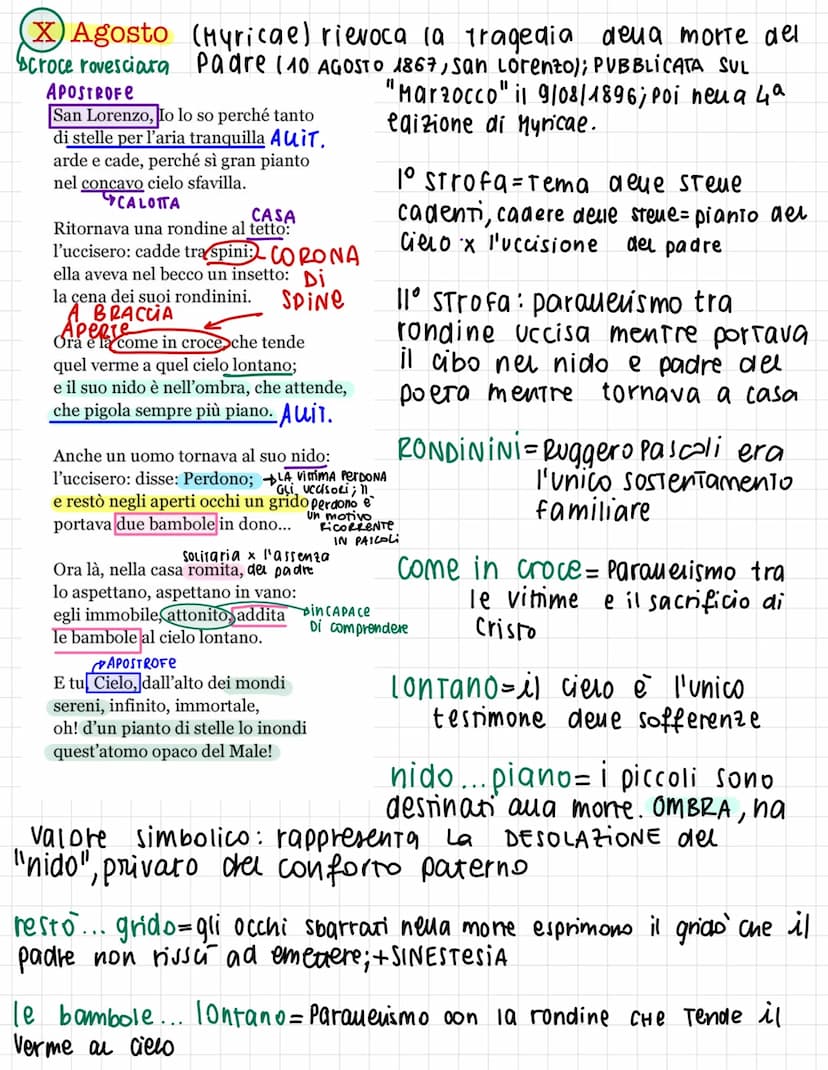 X Agosto (Myricae) rievoca la tragedia della morte del
croce rovesciata Padre (10 AGOSTO 1867, San Lorenzo); PUBBLICATA SUL
"Marzocco" il 9/08/1896; poi nella 4ª
edizione di Myricae.
APOSTROFE
San Lorenzo, Io lo so perché tanto
di stelle per l'aria tranquilla ALLIT.
arde e cade, perché sì gran pianto
nel concavo cielo sfavilla.
CALOTTA
CASA
Ritornava una rondine al tetto:
l'uccisero: cadde tra spini: CORONA
ella aveva nel becco un insetto: DI
la cena dei suoi rondinini. SPINE
A BRACCIA
APERTE
Ora è là come in croce, che tende
quel verme a quel cielo lontano;
e il suo nido è nell'ombra, che attende,
che pigola sempre più piano. ALLIT.
Anche un uomo tornava al suo nido:
l'uccisero: disse: Perdono; LA vittima PERDONA
Gli uccisori; il
e restò negli aperti occhi un grido perdono è
portava due bambole in dono... un motivo
RICORRENTE
IN PASCOLI
solitaria x l'assenza
Ora là, nella casa romita, del padre
lo aspettano, aspettano in vano:
egli immobile, attonito, addita inCAPACE
Di comprendere
le bambole al cielo lontano.
APOSTROFE
E tu, Cielo, dall'alto dei mondi
sereni, infinito, immortale,
oh! d'un pianto di stelle lo inondi
quest'atomo opaco del Male!
1º strofa=Tema delle STELLE
cadenti, cadere delle stelle= pianto del
cielo x l'uccisione del padre
11º STROFA: parallelismo tra
rondine uccisa mentre portava
il cibo nel nido e padre del
poeta mentre tornava a casa
RONDININI=Ruggero Pascoli era
l'unico sostentamento
familiare
come in croce= Parallelismo tra
le vittime e il sacrificio di
Cristo
LONTANO=il cielo è l'unico
testimone delle sofferenze
nido...piano= i piccoli sono
destinati alla morte. OMBRA, ha
valore simbolico: rappresenta LA DESOLAZIONE del
"nido", privato del conforto paterno
restò... grido=gli occhi sbarrati nella morte esprimono il grido che il
padre non riuscì ad emettere;+SINESTESIA
le bambole... lontano= Parallelismo con la rondine CHE Tende il
verme al cielo